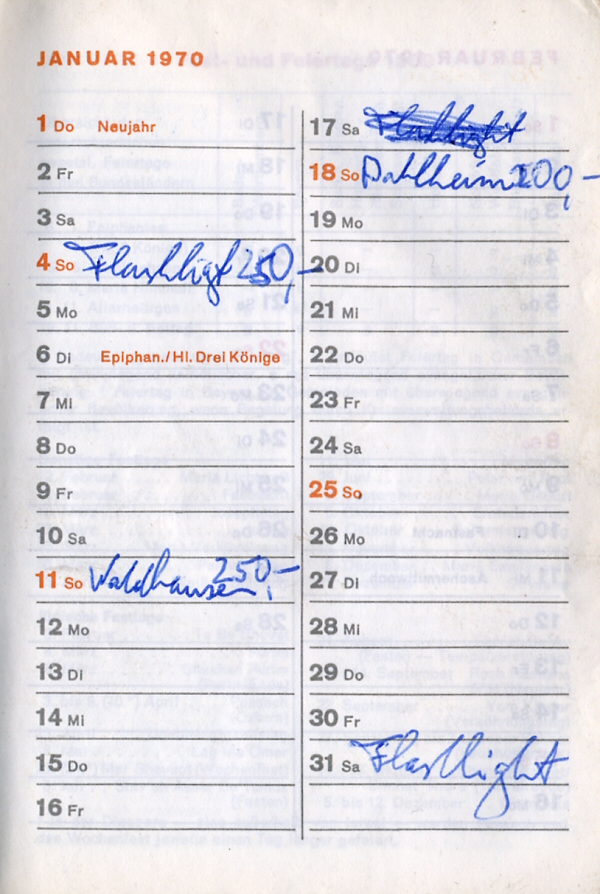 JANUAR 1970
1 Do Neujahr
2 Fr
3 Sa
4 So Flashligt 250,-
5 Mo
6 Di Epiphan./Hl. Drei Könige
7 Mi
8 Do
9 Fr
10 Sa
11 So Waldhausen 250,-
12 Mo
13 Di
14 Mi
15 Do
16 Fr
17 Sa Flashlight
18 So Dahlheim 200,-
19 Mo
20 Di
21 Mi
22 Do
23 Fr
24 Sa
25 So
26 Mo
27 Di
28 Mi
29 Do
30 Fr
31 Sa Flashlight